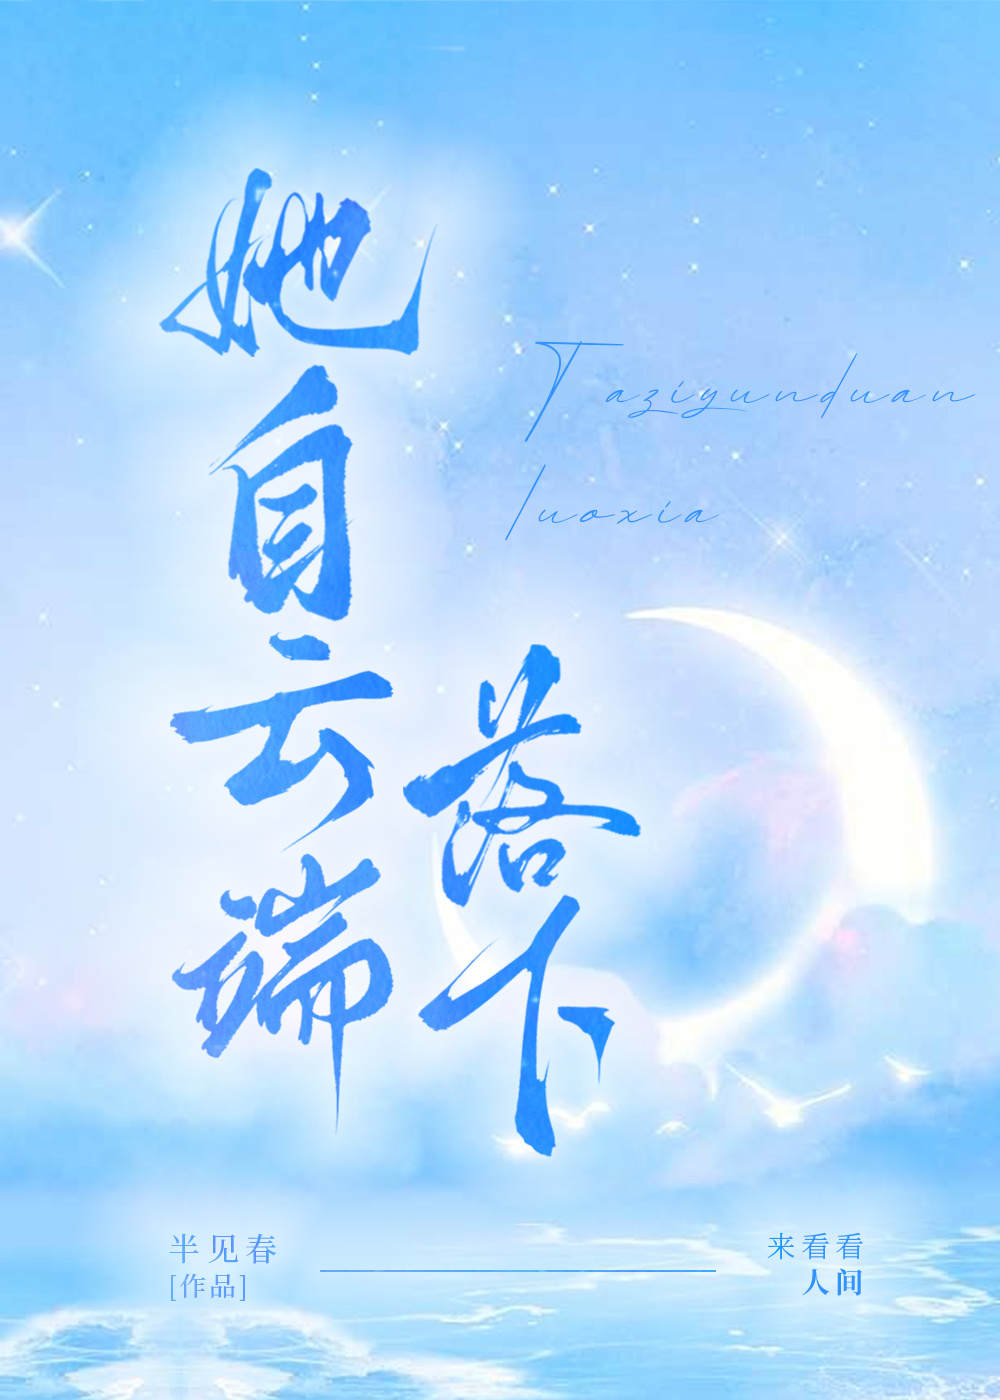 她自云端
落下
Taziyunduan
luoxia
半见春
[作品]
来看看
人间